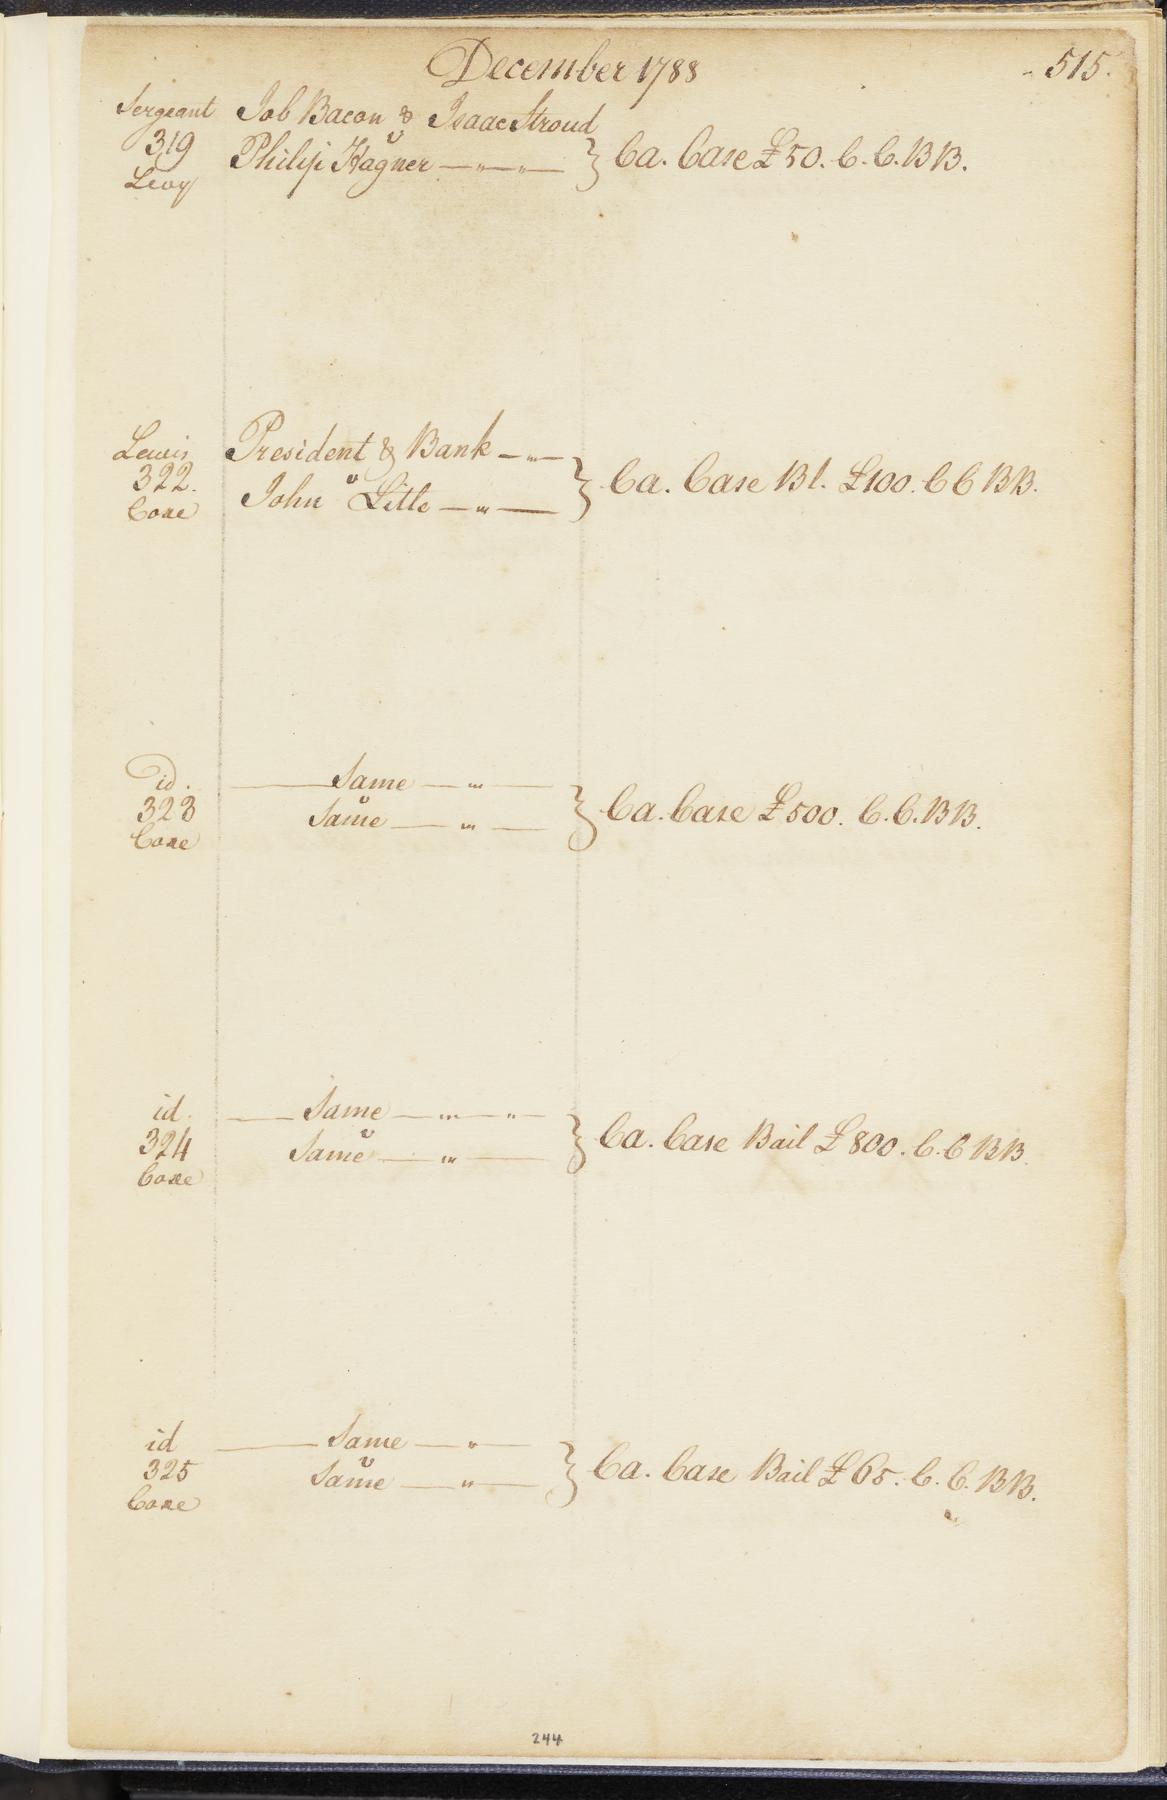 December 1788
515.
Sergeant Job Bacon & Isaac Stroud
319 v
Levy Philip Hagner } Ca. Case £50. C. C. BB.
Lewis President & Bank
322. v } Ca. Case Bl. £100. C C BB.
Coxe John Litle
id. Same
323 v } Ca. Case £500. C. C. BB.
Coxe Same
id. Same
324 v } Ca. Case Bail £800. C. C BB
Coxe Same
id Same
325 v } Ca. Case Bail £65. C. C. BB.
Coxe Same
244